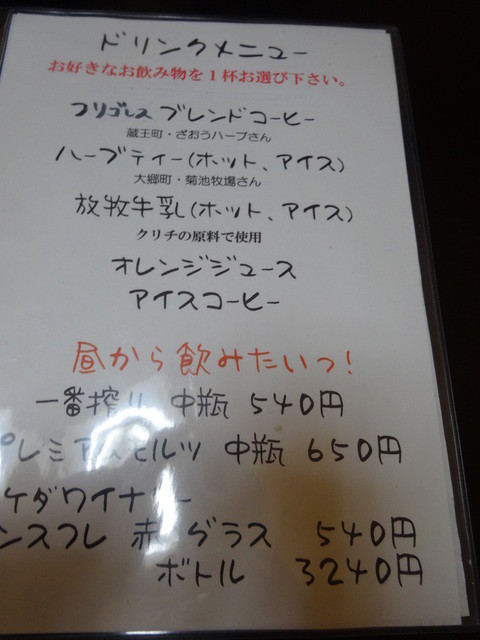 ドリンクメニュー
お好きなお飲み物を1杯お選び下さい。
フリゴレス ブレンドコーヒー
蔵王町・ざおうハーブさん
ハーブティー(ホット、アイス)
大郷町・菊池牧場さん
放牧牛乳(ホット、アイス)
クリチの原料で使用
オレンジジュース
アイスコーヒー
昼から飲みたいっ!
一番搾り 中瓶 540円
プレミアムモルツ 中瓶 650円
ケダワイナリー
ンスフレ 赤 グラス 540円
ボトル 3240円